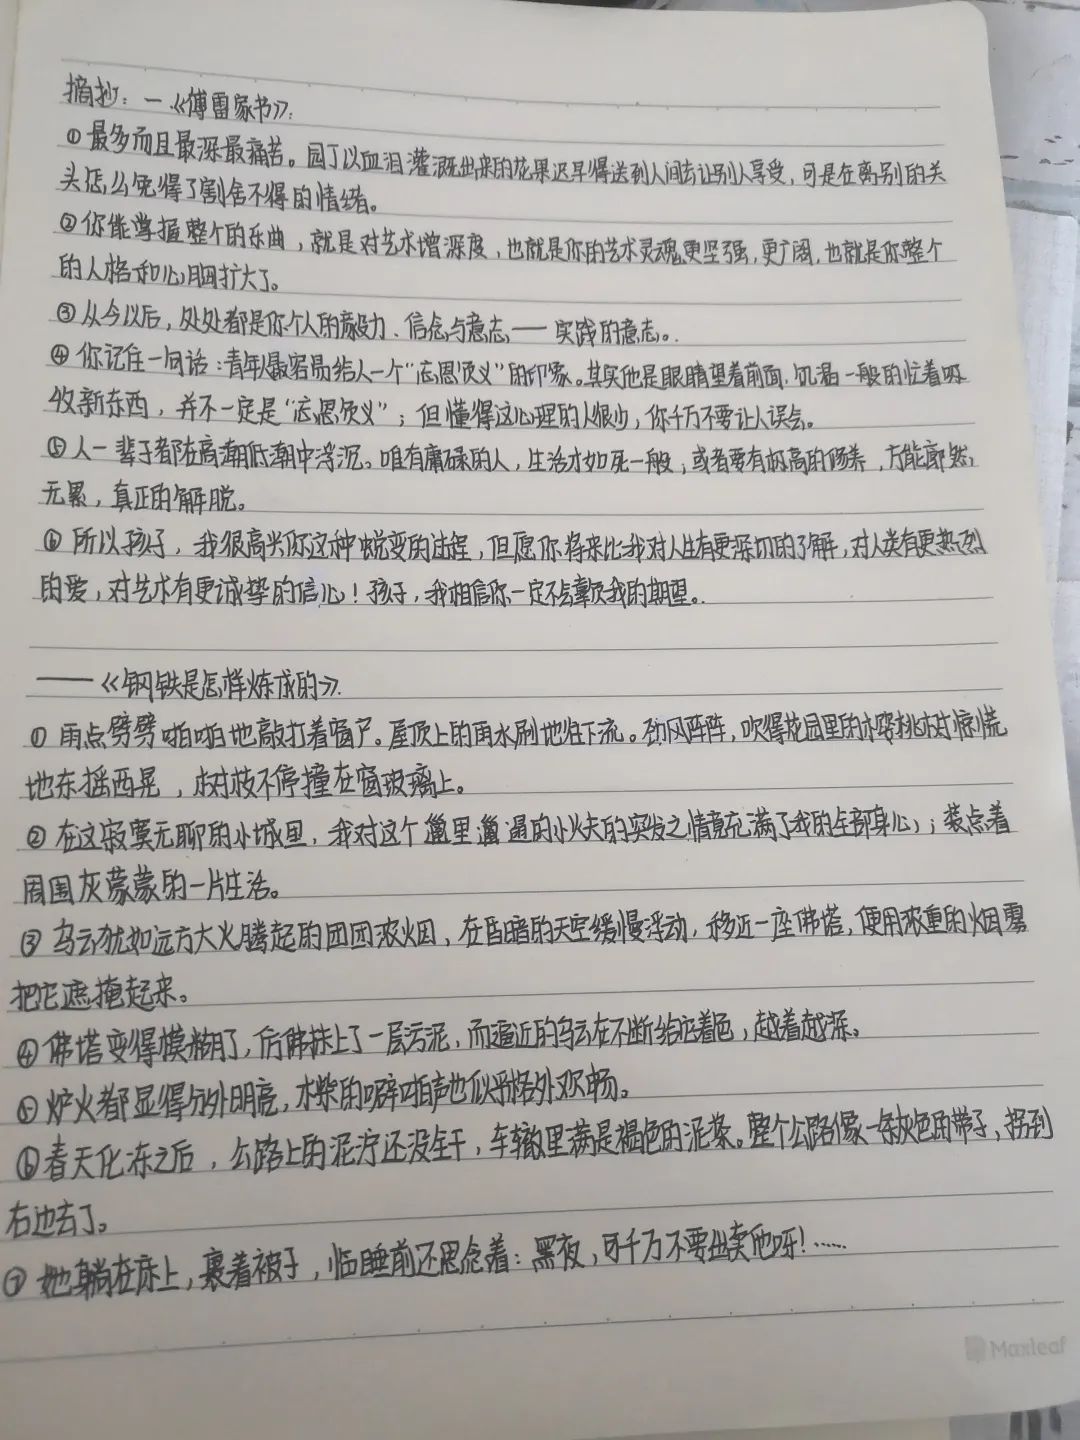 摘抄：一.《傅雷家书》：
①最多而且最深最痛苦。园丁以血泪灌溉出来的花果迟早得送到人间去让别人享受，可是在离别的关
头怎么免得了割舍不得的情绪。
②你能掌握整个的乐曲，就是对艺术增深度，也就是你的艺术灵魂更坚强，更广阔，也就是你整个
的人格和心胸扩大了。
③从今以后，处处都是你个人的毅力、信念与意志——实践的意志。
④你记住一句话：青年人最容易给人一个“忘恩负义”的印象。其实他是眼睛望着前面，饥渴一般的忙着吸
收新东西，并不一定是“忘恩负义”；但懂得这心理的人很少，你千万不要让人误会。
⑤人一辈子都在高潮低潮中浮沉。唯有庸碌的人，生活才如死一般；或者要有极高的修养，方能廓然
无累，真正的解脱。
⑥所以孩子，我很高兴你这种蜕变的过程，但愿你将来比我对人生有更深切的了解，对人类有更热烈
的爱，对艺术有更诚挚的信心！孩子，我相信你一定不会辜负我的期望。
——《钢铁是怎样炼成的》.
①雨点劈劈啪啪地敲打着窗户。屋顶上的雨水刷地往下流。劲风阵阵，吹得花园里的樱桃树惊慌
地东摇西晃，树枝不停撞在窗玻璃上。
②在这寂寞无聊的小城里，我对这个邋里邋遢的小火夫的突发之情竟充满了我的全部身心，；装点着
周围灰蒙蒙的一片生活。
③乌云犹如远方大火腾起的团团浓烟，在昏暗的天空缓慢浮动，移近一座佛塔，便用浓重的烟雾
把它遮掩起来。
④佛塔变得模糊了，仿佛抹上了一层污泥，而逼近的乌云在不断给它着色，越着越深。
⑤炉火都显得分外明亮，木柴的噼啪声也似乎格外欢畅。
⑥春天化冻之后，公路上的泥泞还没全干，车辙里满是褐色的泥浆。整个公路像一条灰色的带子，拐到
右边去了。
⑦她躺在床上，裹着被子，临睡前还思念着：黑夜，可千万不要出卖他呀！……
Maxleaf